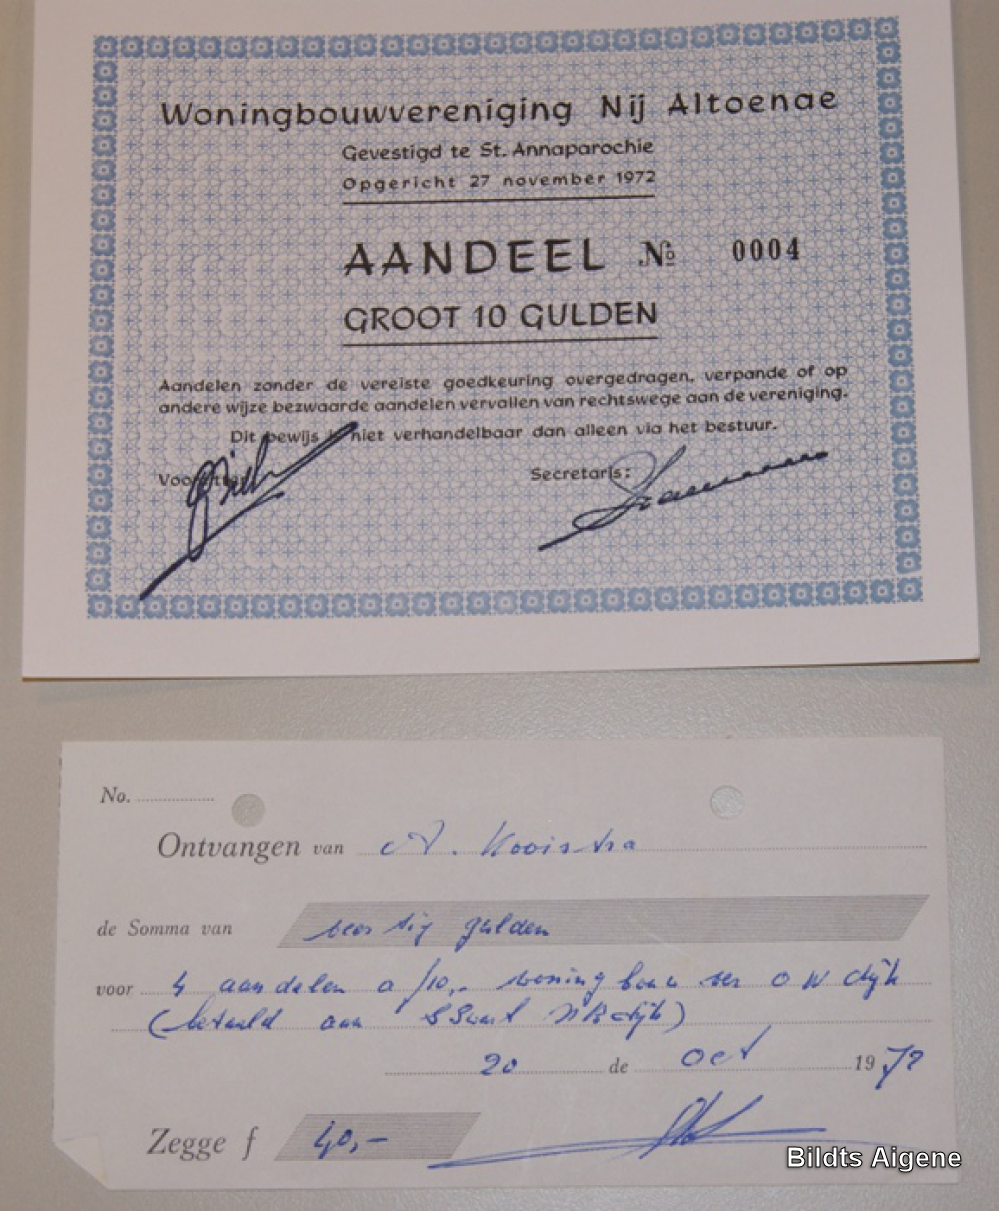 Woningbouwvereniging Nij Altoenae
Gevestigd te St. Annaparochie
Opgericht 27 november 1972
AANDEEL № 0004
GROOT 10 GULDEN
Aandelen zonder de vereiste goedkeuring overgedragen, verpande of op
andere wijze bezwaarde aandelen vervallen van rechtswege aan de vereniging.
Dit bewijs niet verhandelbaar dan alleen via het bestuur.
Secretaris:
No.
Ontvangen van A. Kooistra
de Somma van veertig gulden
voor 4 aandelen a ƒ10,- woningbouw ver O W dijk
(betaald aan S Swart NB dijk)
20 de Oct 1972
Zegge f 40,-
Bildts Aigene